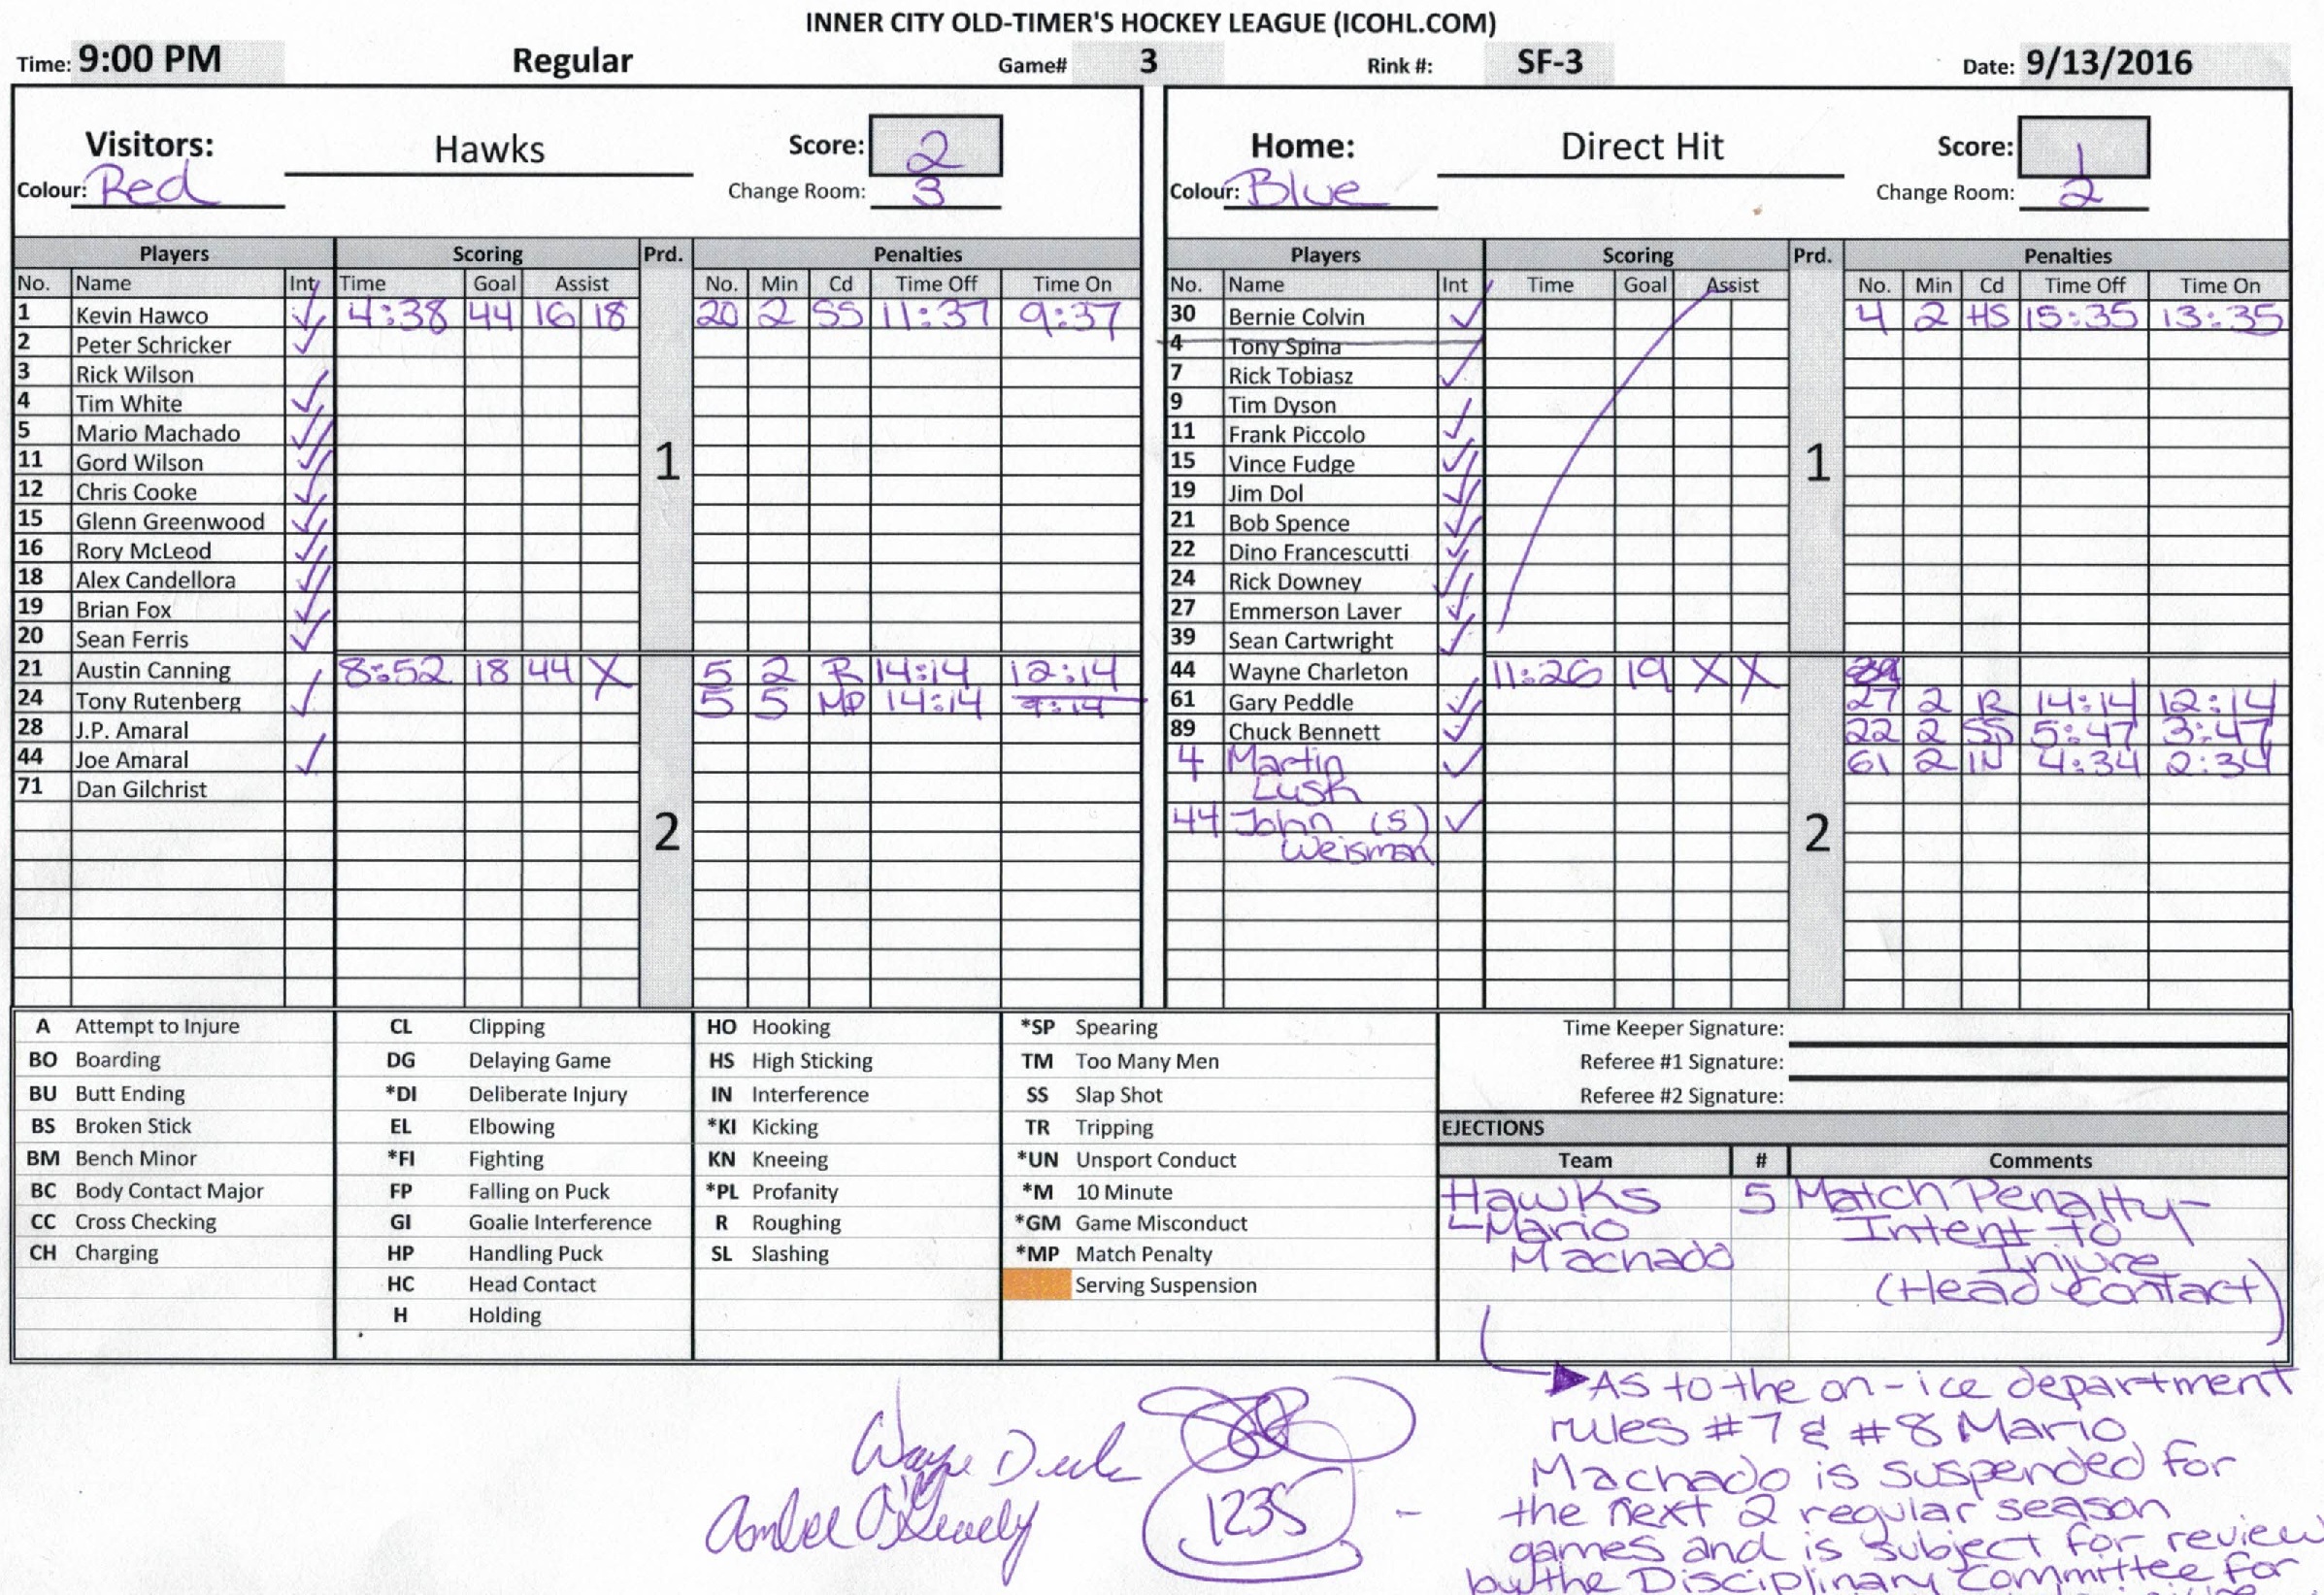 INNER CITY OLD-TIMER'S HOCKEY LEAGUE (ICOHL.COM)
Time: 9:00 PM Regular Game# 3 Rink #: SF-3 Date: 9/13/2016
Visitors: Hawks Score: 2
Colour: Red Change Room: 3
Home: Direct Hit Score: 1
Colour: Blue Change Room: 2
Players Scoring Prd. Penalties
No. Name Int Time Goal Assist No. Min Cd Time Off Time On
1 Kevin Hawco 4:38 44 16 18 20 2 SS 11:37 9:37
2 Peter Schricker
3 Rick Wilson
4 Tim White
5 Mario Machado
11 Gord Wilson 1
12 Chris Cooke
15 Glenn Greenwood
16 Rory McLeod
18 Alex Candellora
19 Brian Fox
20 Sean Ferris
21 Austin Canning 8:52 18 44 X 5 2 R 14:14 12:14
24 Tony Rutenberg 5 5 MP 14:14 9:14
28 J.P. Amaral
44 Joe Amaral
71 Dan Gilchrist
2
Players Scoring Prd. Penalties
No. Name Int Time Goal Assist No. Min Cd Time Off Time On
30 Bernie Colvin 4 2 HS 15:35 13:35
4 Tony Spina
7 Rick Tobiasz
9 Tim Dyson
11 Frank Piccolo
15 Vince Fudge 1
19 Jim Dol
21 Bob Spence
22 Dino Francescutti
24 Rick Downey
27 Emmerson Laver
39 Sean Cartwright
44 Wayne Charleton 11:26 19 X X
61 Gary Peddle 27 2 R 14:14 12:14
89 Chuck Bennett 22 2 SS 5:47 3:47
4 Martin 61 2 IN 4:34 2:34
Lush
44 John (S) 2
Weisman
A Attempt to Injure
BO Boarding
BU Butt Ending
BS Broken Stick
BM Bench Minor
BC Body Contact Major
CC Cross Checking
CH Charging
CL Clipping
DG Delaying Game
*DI Deliberate Injury
EL Elbowing
*FI Fighting
FP Falling on Puck
GI Goalie Interference
HP Handling Puck
HC Head Contact
H Holding
HO Hooking
HS High Sticking
IN Interference
*KI Kicking
KN Kneeing
*PL Profanity
R Roughing
SL Slashing
*SP Spearing
TM Too Many Men
SS Slap Shot
TR Tripping
*UN Unsport Conduct
*M 10 Minute
*GM Game Misconduct
*MP Match Penalty
Serving Suspension
Time Keeper Signature:
Referee #1 Signature:
Referee #2 Signature:
EJECTIONS
Team # Comments
Hawks 5 Match Penalty-
Mario Intent to
Machado Injure
(Head Contact)
As to the on-ice department
rules #7 & #8 Mario
Machado is suspended for
the next 2 regular season
games and is subject for review
by the Disciplinary Committee for
Wayne
1235